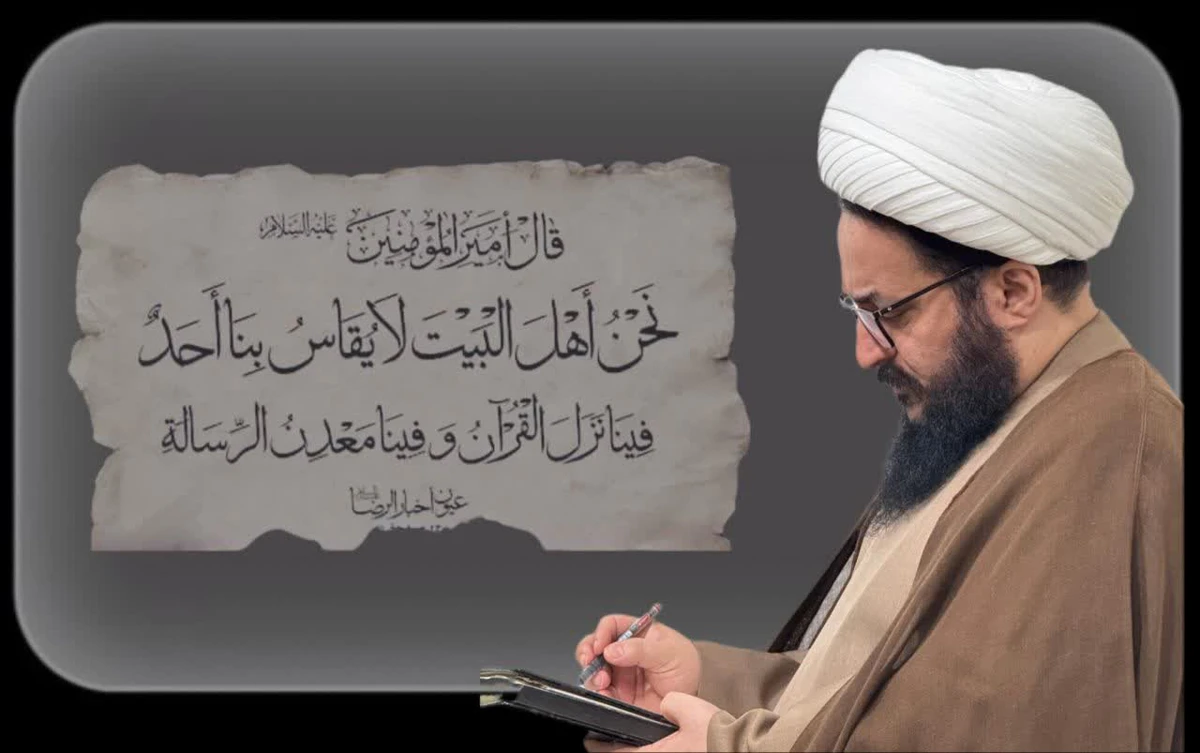 قَالَ أَمِيرُ الْمُؤْمِنِينَ عَلَيْهِ السَّلَامُ
نَحْنُ أَهْلَ الْبَيْتَ لَا يُقَاسُ بِنَا أَحَدٌ
فِينَا نَزَلَ الْقُرْآنُ وَ فِينَا مَعْدِنُ الرِّسَالَةِ
عيون أخبار الرضا